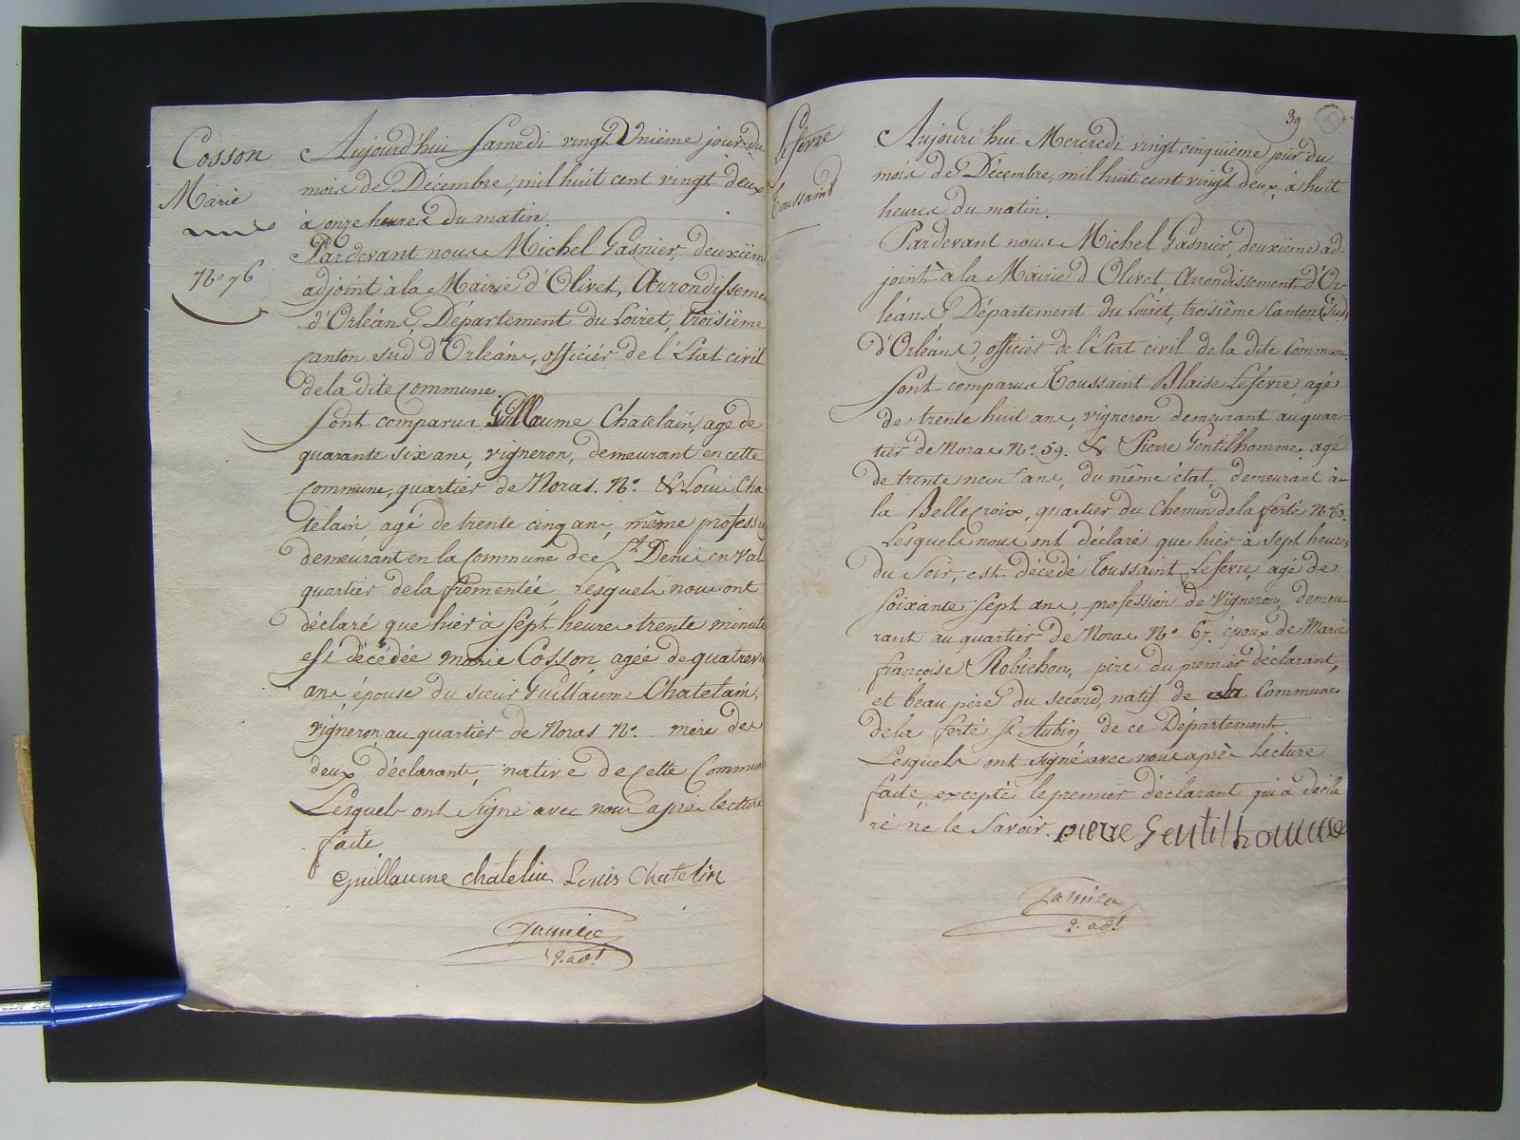 Cosson
Marie
N.° 76
Aujourd'hui Samedi vingt Unième jour du
mois de Décembre, mil huit cent vingt deux
à onze heures du matin.
Pardevant nous Michel Gasnier, deuxièm
adjoint à la Mairie d'Olivet, Arrondisseme
d'Orléans, Département du Loiret, troisième
canton sud d'Orléans, officier de l'Etat civil
de la dite commune.
Sont comparus Guillaume Chatelain, agé de
quarante six ans, vigneron, demeurant en cette
commune, quartier de Noras. N.° & Louis Cha
telain, agé de trente cinq ans, même professi
demeurant en la commune de St. Denis en Val
quartier de la fromentée, Lesquels nous ont
déclaré que hier à Sept heures trente minute
est décédée marie Cosson, agée de quatrevi
ans, épouse du sieur Guillaume Chatelain,
vigneron, au quartier de Noras N.° mère des
deux déclarants, native de cette Commun
Lesquels ont Signé avec nous après lecture
faite
Guillaume chatelin Louis Chatelin
2. adt
39
Lefevre
Toussaint
Aujourd'hui Mercredi vingt cinquième jour du
mois de Décembre, mil huit cent vingt deux, à huit
heures du matin.
Pardevant nous Michel Gasnier, deuxième ad
joint à la Mairie d'Olivet, Arrondissement d'Or-
léans, Département du Loiret, troisième Canton (Sud)
d'Orléans, officier de l'Etat civil de la dite Commune.
Sont comparus Toussaint Blaise Lefevre, agé
de trente huit ans, vigneron demeurant au quar-
tier de Noras N.° 59. & Pierre Gentilhomme, agé
de trente neuf ans, du même état, demeurant à
la Belle croix, quartier du Chemin de la ferté N.°
Lesquels nous ont déclaré que hier à Sept heures
du Soir, est décédé Toussaint Lefevre, agé de
Soixante Sept ans, profession de Vigneron, demeu
rant au quartier de Noras N.° 67. époux de Marie
françoise Robichon, père du premier déclarant,
et beau père du second, natif de la Commune
de la ferté St. Aubin de ce Département.
Lesquels ont signé avec nous après Lecture
faite, excepté le premier déclarant qui a décla
ré ne le Savoir. pierre Gentilhomme
2. adt